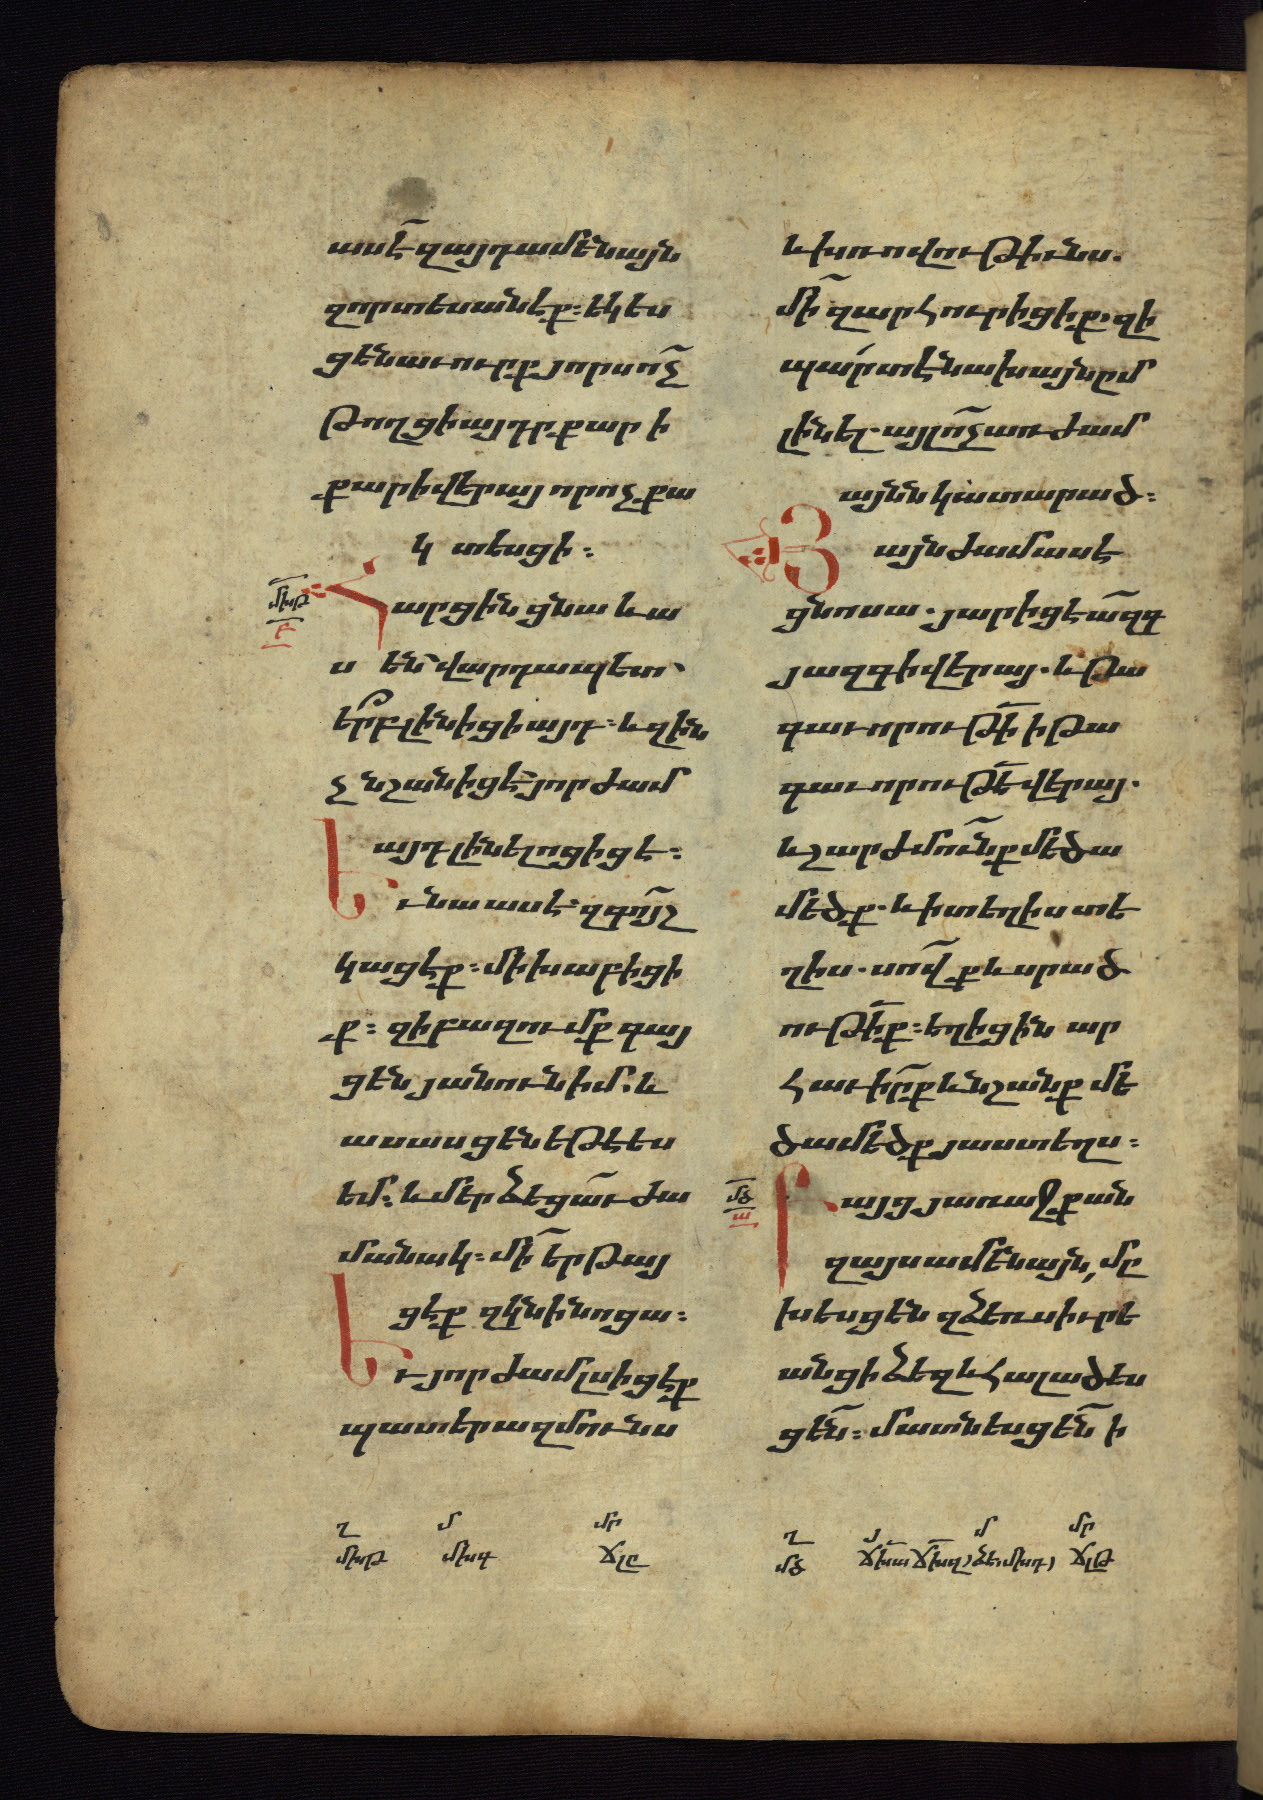 ասէ̄ զայդամենայն
զորտեսանէք։ եկես
ցենաւուրք յորսո՞չ
թողցի այդր քար ի
քարիվերայ որոչքա
կտեսցի։
Հարցին ցնա և ա
սեն՝ վարդապետ՝
ե՞րբ լինիցի այդ։ և զին
չ նշանիցէ յորժամ
այդ լինելոցիցէ։
Եւ նա ասէ՝ զգո՞յշ
կացէք։ մի խաբիցի
ք։ զի բազումք գայ
ցեն յանուն իմ. և
ասասցեն եթէ ես
եմ. և մերձեցաւ̄ ժա
մանակ։ մի̄ երթայ
ցէք զկնի նոցա։
Եւ յորժամ լսիցէք
պատերազմունս
և խռովութիւնս.
մի̄ զարհուրիցիք. զի
պա՛րտ է նախ այնըմ
լինել. այլ ո՞չ առժամ
այնն կատարած։
Յայնժամ ասէ
ցնոսա. յարիցէ ա̄զգ
յազգի վերայ. և թա
գաւորութի̄ ի թա
գաւորութե̄ վերայ.
և շարժմու̄նք մեծա
մեծք. և ի տեղիս տե
ղիս. սո̄վք և սրած
ութի̄ք։ եղիցին ար
հաւի̄րք և նշանք մե
ծամեծք յաստեղս։
Բայց յառաջ քան
զայս ամե̄նայն, մը
խեսցեն զձեռս իւրե
անց ի ձեզ և հալածես
ցեն̄։ մատնեսցեն̄ ի
մխթ
բ
մծ
ա
ղ մ մր
մխթ մխգ ճլը
ղ մ մր
մծ ճլթ